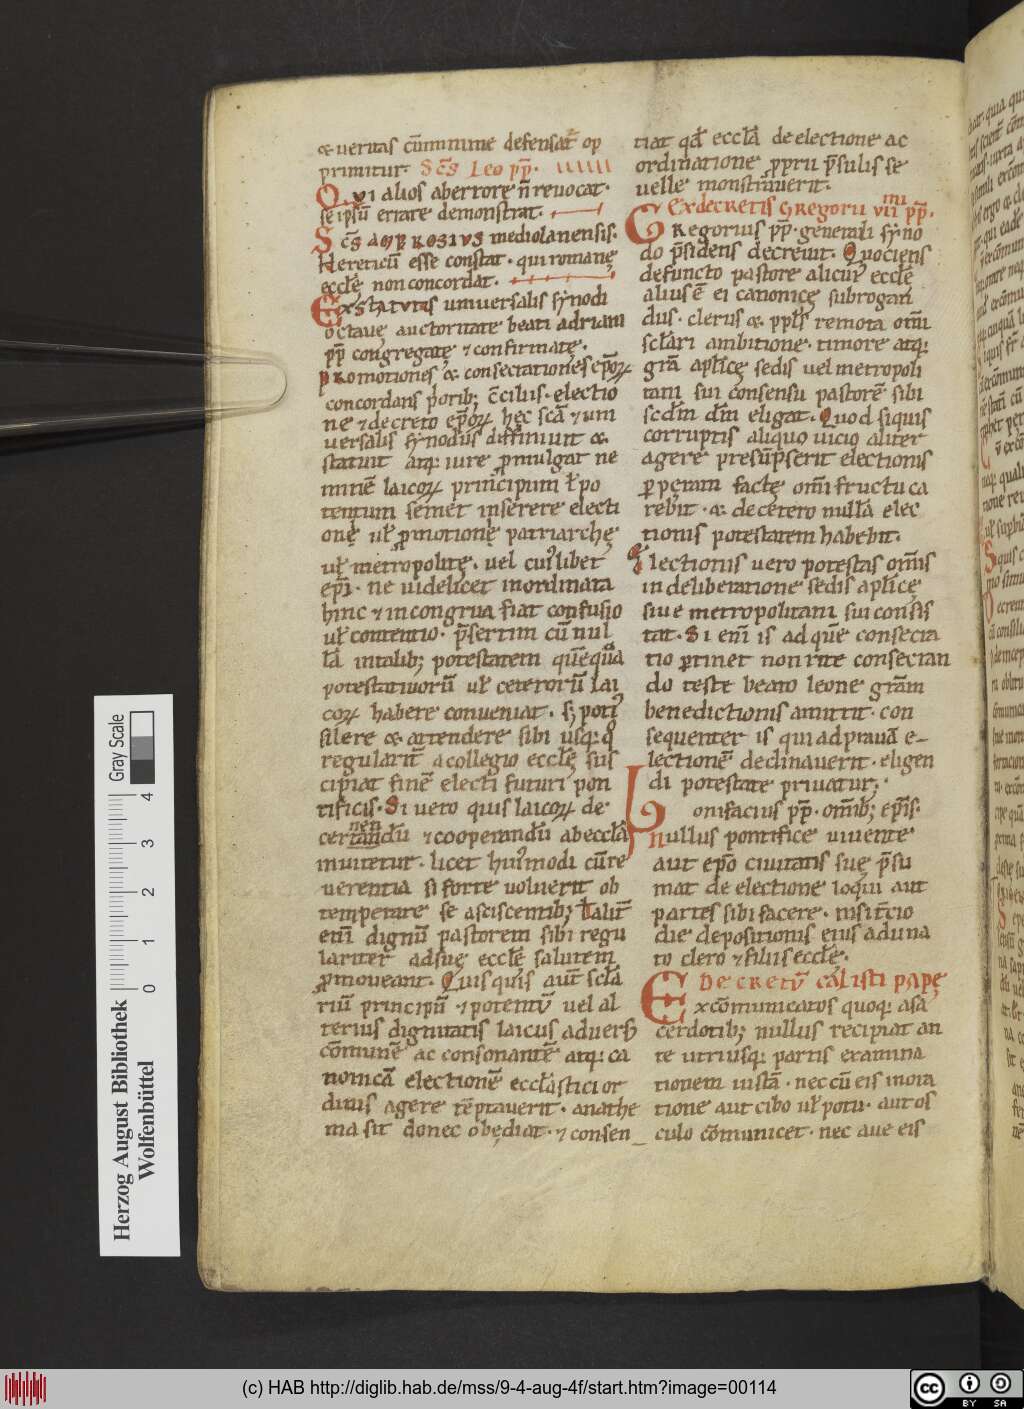 & ueritas cũminime defensat̃ op
primitur. Sc̃s Leo pp̃.
Qvi alios ab errore ñ reuocat.
se ipsũ errare demonstrat.
Sc̃s ambrosivs mediolanensis.
Hereticũ esse constat. qui romanę
ecclę̃ non concordat.
Ex statvtis uniuersalis sẏnodi
octauę auctoritate beati adriani
pp̃ congregatę ⁊ confirmatę.
Promotiones & consecrationes ep̃oꝝ
concordans priorib; c̃ciliis. electio
ne ⁊ decreto ep̃oꝝ hęc scã ⁊ uni
uersalis sẏnodus diffiniuit &
statuit atq: iure ꝓmulgat ne
minẽ laicoꝝ principum ł po
tentum semet inserere electi
onę uł ꝓmotionę patriarchę
uł metropolitę. uel cuiꝰlibet
ep̃i. ne uidelicet inordinata
hinc ⁊ incongrua fiat confusio
uł contentio. p̃sertim cũ nul
lã in talib; potestatem quẽquã
potestatiuorũ uł ceterorũ lai
coꝝ habere conueniat. s; potiꝰ
silere & attendere sibi usq: q̊
regularit̃ a collegio ecclę̃ sus
cipiat finẽ electi futuri pon
tificis. Si uero quis laicoꝝ de
certandũ ⁊ cooperandũ ab ecclã
nen
inuitetur. licet huiꝰmodi cũ re
uerentia si forte uoluerit ob
temperare se asciscentib; Talit̃
eni dignũ pastorem sibi regu
lariter ad suę ecclę̃ salutem
ꝓmoueant. Quisquis aut̃ sclã
riũ principũ ⁊ potentũ uel al
terius dignitatis laicus aduersꝰ
cõmunẽ ac consonantẽ atq: ca
nonicã electionẽ ecclãstici or
dinis agere tẽptauerit. anathe
ma sit donec obędiat. ⁊ consen
tiat qd̃ ecclã de electione ac
ordinatione pprii p̃sulis se
uelle monstrauerit.
Ex decretis Gregorii vii pp̃.
Gregorius pp̃. generali sẏno
do p̃sidens decreuit. Quociens
defuncto pastore alicuiꝰ ecclę̃
alius ẽ ei canonicę subrogan
dus. clerus & ppl̃s remota om̃i
sclãri ambitione. timore atq:
grã aplicę̃ sedis uel metropoli
tani sui consensu pastorẽ sibi
scdm̃ dm̃ eligat. Quod siquis
corruptis aliquo uicio aliter
agere presũpserit electionis
ꝑperam factę om̃i fructu ca
rebit. & de cetero nullã elec
tionis potestatem habebit.
Electionis uero potestas om̃is
in deliberatione sedis aplicę̃
siue metropolitani sui consis
tat. Si eni is ad quẽ consecra
tio ꝑtinet non rite consecran
do teste beato leone grãm
benedictionis amittit. con
sequenter is qui ad prauã e-
lectionẽ declinauerit. eligen
di potestate priuatur.
Bonifacius pp̃. om̃ib; ep̃is.
Nullus pontifice uiuente
aut ep̃o ciuitatis suę p̃su
mat de electione loqui aut
partes sibi facere. nisi t̃cio
die depositionis eius aduna
to clero ⁊ filiis ecclę̃.
Decretũ cal̃isti papę
Excõmunicatos quoq: a sa
cerdotib; nullus recipiat an
te utriusq: partis examina
tionem iustã. nec cũ eis in ora
tione aut cibo uł potu. aut os
culo cõmunicet. nec aue eis
Gray Scale
0 1 2 3 4
Herzog August Bibliothek
Wolfenbüttel
(c) HAB http://diglib.hab.de/mss/9-4-aug-4f/start.htm?image=00114
cc BY SA